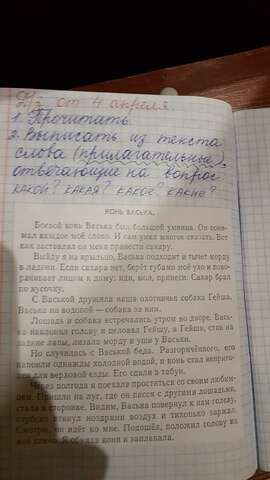 Д/з от 4 апреля.
1. Прочитать.
2. Выписать из текста
слова (прилагательные),
отвечающие на вопрос
КАКОЙ? КАКАЯ? КАКОЕ? КАКИЕ?
КОНЬ ВАСЬКА.
Боевой конь Васька был большой умница. Он пони-
мал каждое моё слово. И сам умел многое сказать. Вот
как заставлял он меня принести сахару.
Выйду я на крыльцо, Васька подходит и тычет морду
в ладони. Если сахара нет, берёт губами моё ухо и пово-
рачивает лицом к дому: иди, мол, принеси. Сахар брал
по кусочку.
С Васькой дружила наша охотничья собака Гейша.
Васька на водопой — собака за ним.
Лошадь и собака встречались утром во дворе. Вась-
ка наклонял голову и целовал Гейшу, а Гейша, стоя на
задних лапах, лизала морду и уши у Васьки.
Но случилась с Васькой беда. Разгорячённого, его
напоили однажды холодной водой, и конь стал непригo-
ден для верховой езды. Его сдали в табун.
Через полгода я поехала проститься со своим любим-
цем. Пришли на луг, где он пасся с другими лошадьми,
стали в сторонке. Видим, Васька повернул к нам голову,
глубоко втянул ноздрями воздух и тихонько заржал.
Смотрю, он идёт ко мне. Подошёл, положил голову на
моё плечо. Я обняла коня и заплакала.